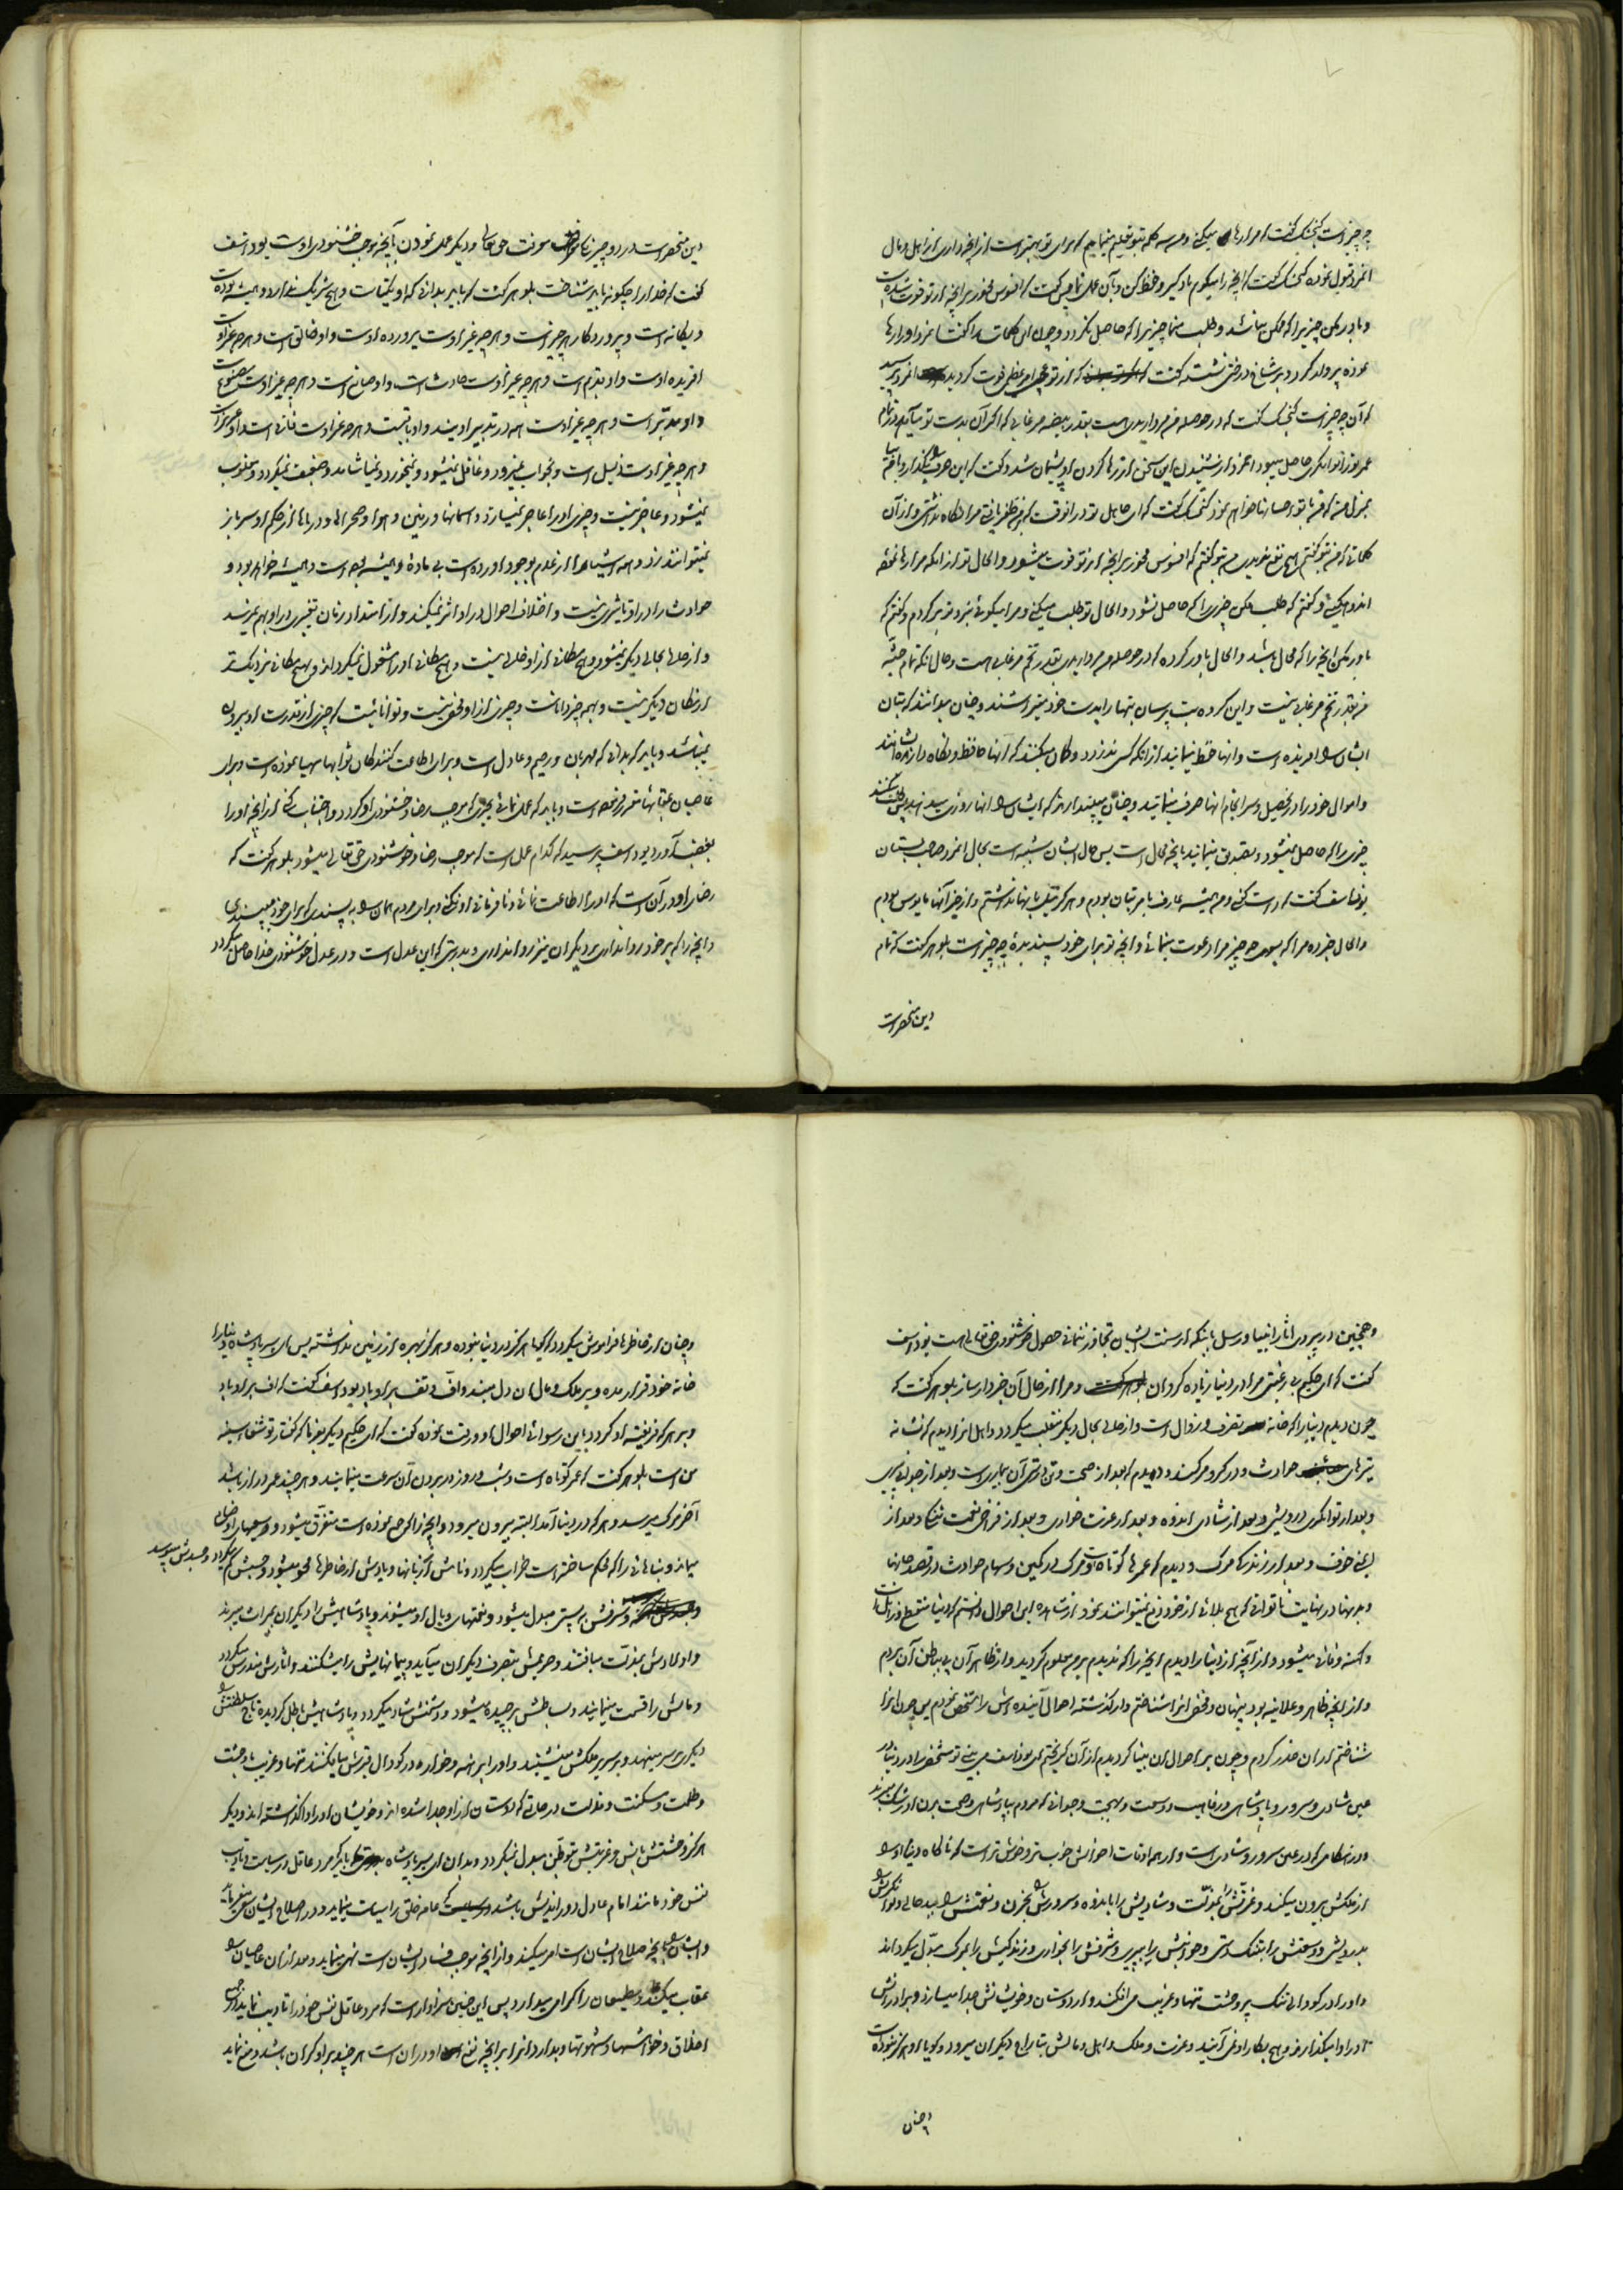 چه چیز است گنجشک گفت که مرا رها میکنی و من سه کلمه بتو تعلیم مینمایم که برای تو بهتر است از آنچه داری از اهل و مال
انمرد قبول نموده گنجشک گفت که آنچه را میگویم یاد گیر و حفظ کن و بآن عمل نما پس گفت که افسوس مخور بر آنچه از تو فوت شده است
و باور مکن چیزیرا که ممکن نباشد و طلب منما چیزیرا که حاصل نگردد و چون این کلمات را گفت انمرد او را رها
نموده پرواز کرد و بر شاخ درختی نشست گفت که از تو چه امر عظیمی فوت گردید انمرد پرسید
که آن چه چیز است گنجشک گفت که در حوصله من مروارید است بقدر بیضه مرغابی که اگر آن بدست تو میآمد در تمام
عمر تو توانگری حاصل میبود انمرد از شنیدن این سخن از رها کردن او پشیمان شد و گفت که این حرف را بگذار و بیا
بمنزل من که من با تو احسانها خواهم نمود گنجشک گفت که ای جاهل تو در انوقت که بمن ظفر یافتی مرا نگاه نداشتی و از آن
کلماتی که من بتو گفتم هیچ نفع نبردی من بتو گفتم که افسوس مخور بر آنچه از تو فوت میشود و الحال تو از آنکه مرا رها نموده
اندوه میکشی و گفتم که طلب مکن چیزیرا که حاصل نشود و الحال تو طلب میکنی و مرا میگوئی بنزد تو برگردم و گفتم که
باور مکن آنچه را که محال باشد و الحال باور کرده که در حوصله من مرواریدی بقدر تخم مرغابی هست و حال آنکه تمام جثه
من بقدر تخم مرغابی نیست و این گروه بت پرستان بتها را بدست خود میتراشند و چنان میدانند که بتان
ایشان را افریده است و انها حفظ مینمایند از آنکه کسی ندزدد و گمان میکنند که آنها حافظ و نگاه دارنده ایشانند
و اموال خود را در تحصیل و سرانجام انها صرف مینمایند و چنان میپندارند که ایشان را انها روزی میدهند پس طلب میکنند
چیزی را که حاصل نمیشود و تصدیق مینمایند بآنچه محال است پس حال ایشان شبیه است بحال انمرد صاحب بستان
یوذاسف گفت که راست گفتی و من همیشه عارف بامر بتان بودم و هرگز میل بانها نداشتم و از خیر آنها مایوس بودم
و الحال خبر ده مرا که بسوی چه چیز مرا دعوت مینمائی و آنچه تو برای خود پسندیدهٔ چه چیز است بلوهر گفت که تمام
دین منحصر است
دین منحصر است در دو چیز یکی معرفت حق تعالی و دیگر عمل نمودن بآنچه موجب خوشنودی اوست یوذاسف
گفت که خدا را چگونه باید شناخت بلوهر گفت که باید بدانی که او یکیست و هیچ شریک ندارد و همیشه بوده است
و یگانه است و پروردگار هر چیز است و هر چه غیر اوست پرورده اوست و او خالق است و هر چه غیر اوست
افریده اوست و او قدیم است و هر چه غیر اوست حادث است و او صانع است و هر چه غیر اوست مصنوع است
و او مدبر است و هر چه غیر اوست همه در تدبیر اویند و او باقیست و هر چه غیر اوست فانی است و او عزیز است
و هر چه غیر اوست ذلیل است و بخواب نمیرود و غافل نمیشود و نمیخورد و نمیاشامد و ضعیف نمیگردد و مغلوب
نمیشود و عاجز نیست و چیزی او را عاجز نمیسازد و اسمانها و زمین و هوا و صحراها و دریاها از حکم او سر باز
نمیتوانند زد و همه اشیاء را از عدم بوجود اورده است بی ماده و همیشه بوده است و همیشه خواهد بود و
حوادث را در او تاثیری نیست و اختلاف احوال در او اثر نمیکند و از امتداد زمان تغییری در او بهم نمیرسد
و از حالی بحالی دیگر نمیشود و هیچ مکانی از او خالی نیست و هیچ مکانی او را مشغول نمیگرداند و بهیچ مکانی نزدیکتر
از مکان دیگر نیست و بهمه چیز داناست و چیزی از او مخفی نیست و تواناییست که چیزی از قدرت او بیرون
نمیباشد و باید که بدانی که مهربان و رحیم و عادل است و برای اطاعت کنندگان ثوابها مهیا نموده است و برای
عاصیان عقابها مقرر فرموده است و باید که عمل نمائی بچیزی که موجب رضا و خوشنودی او گردد و اجتناب کنی از آنچه او را
بغضب آورد یوذاسف پرسید که کدام عمل است که موجب رضا و خوشنودی حق تعالی میشود بلوهر گفت که
رضای او در آن است که او را اطاعت نمائی و نافرمانی او نکنی و برای مردم همان را به پسندی که برای خود میپسندی
و آنچه را که بر خود روا نداری بر دیگران نیز روا نداری و بدرستی که این عدل است و در عدل خوشنودی خدا حاصل میگردد
و همچنین در پیروی اثار انبیا و رسل بانکه از سنت ایشان تجاوز ننمائی حصول خوشنودی حق تعالی هست یوذاسف
گفت که ای حکیم بی رغبتی مرا در دنیا زیاده گردان و مرا از حال آن خبردار ساز بلوهر گفت که
چون دیدم دنیا را که خانه تصرف و زوال است و از حالی بحال دیگر منقلب میگردد و اهل انرا دیدم که نشانه
تیرهای حوادث و در گرو مرگند و دیدم که بعد از صحت و تندرستی آن بیماری است و بعد از جوانی پیری
و بعد از توانگری درویشی و بعد از شادی اندوه و بعد از عزت خواری و بعد از فراخی نعمت تنگی و بعد از
ایمنی خوف و بعد از زندگی مرگ و دیدم که عمرها کوتاه است و مرگ در کمین و سهام حوادث در قصد جانها
و بدنها در نهایت ناتوانی که هیچ بلائی از خود دفع نمیتوانند نمود از مشاهده این احوال دانستم که دنیا منقطع و زایل است
و کهنه و فانی میشود و از آنچه از دنیا را دیدم انچه را که ندیدم بر من معلوم گردید و از ظاهر آن پی بباطن آن بردم
و از آنچه ظاهر و علانیه بود پنهان و مخفی انرا شناختم و از گذشته احوال آینده اش را مشخص نمودم پس چون انرا
شناختم از ان حذر کردم و چون بر احوال ان بینا گردیدم از آن گریختم ای یوذاسف می بینی تو شخص را در دنیا در
عین شادی و سرور و پادشاهی و رفاهیت و وسعت و بهجت و جوانی که مردم بپادشاهی و صحت بدن او رشک میبرند
و در هنگامی که در عین سرور و شادی است و در همه اوقات احوالش خوب تر و خوش تر است که ناگاه دنیا او را
از ملکش بیرون میکند و عزتش را بمذلت و شادیش را باندوه و سرورش را بحزن و نعمتش را ببدحالی و توانگریش را
بدرویشی و وسعتش را بتنگدستی و جوانیش را بپیری و شرفش را بخواری و زندگیش را بمرگ مبدل میگرداند
و او را در گودالی تنگ پر وحشت تنها و غریب می افکند و از دوستان و خویشانش جدا میسازد و برادرانش
او را وا میگذارند و هیچ بکار او نمی آیند و عزت و ملک و اهل و مالش بتاراج دیگران میرود و گویا او هرگز نبوده است
و چنان
و چنان از خاطرها فراموش میگردد که گویا هرگز در دنیا نبوده و هرگز بهره از زمین نداشته پس ای پسر پادشاه دنیا را
خانه خود قرار مده و بر ملک و مال ان دل مبند و اُف و تف بر او باد یوذاسف گفت که اف بر او باد
و بر هر که فریفته او گردد با این رسوائی احوال او و رقت نموده گفت که ای حکیم دیگر بفرما که گفتار تو شفای سینه
من است بلوهر گفت که عمر کوتاه است و شب و روز در بردن آن سرعت مینمایند و هر چند عمر دراز باشد
آخر مرگ میرسد و هر که در دنیا آمد البته بیرون میرود و آنچه را که جمع نموده است متفرق میشود و وسعیهای او ضایع
میماند و بناهائی را که محکم ساخته است خراب میگردد و نامش از زبانها و یادش از خاطرها محو میشود و حسبش گم میگردد و جسدش میپوسد
و شرفش به پستی مبدل میشود و نعمتهای وبال او میشوند و پادشاهیش را دیگران بمیراث میبرند
و اولادش بمذلت میافتند و حریمش بتصرف دیگران میآید و پیمانهایش را میشکنند و اثارش مندرس میگردد
و مالش را قسمت مینمایند و بساطش برچیده میشود و دشمنش شاد میگردد و پادشاهیش باطل گردیده تاج سلطنتش را
دیگری بر سر مینهد و بر سریر ملکش مینشیند و او را برهنه و خوار در گودال قبرش میافکنند تنها و غریب با وحشت
و ظلمت و مسکنت و مذلت در حالتی که دوستان از او جدا شده اند و خویشان او را واگذاشته اند و دیگر
هرگز وحشتش بانس و غربتش بتوطن مبدل نمیگردد و بدان ای پسر پادشاه باید که مرد عاقل در سیاست و تادیب
نفس خود مانند امام عادل دوراندیش باشد که عامه خلق را سیاست مینماید و در اصلاح ایشان سعی مینماید
و ایشان را بآنچه صلاح ایشان است امر میکند و از آنچه موجب فساد ایشان است نهی مینماید و بعد از ان عاصیان را
عقاب میکند و مطیعان را گرامی میدارد پس این چنین سزاوار است که مرد عاقل نفس خود را تادیب نماید در جمیع
اخلاق و خواهشها و شهوتها و بدارد انرا بر آنچه نفع او در ان است هر چند بر او گران باشد و منع نماید